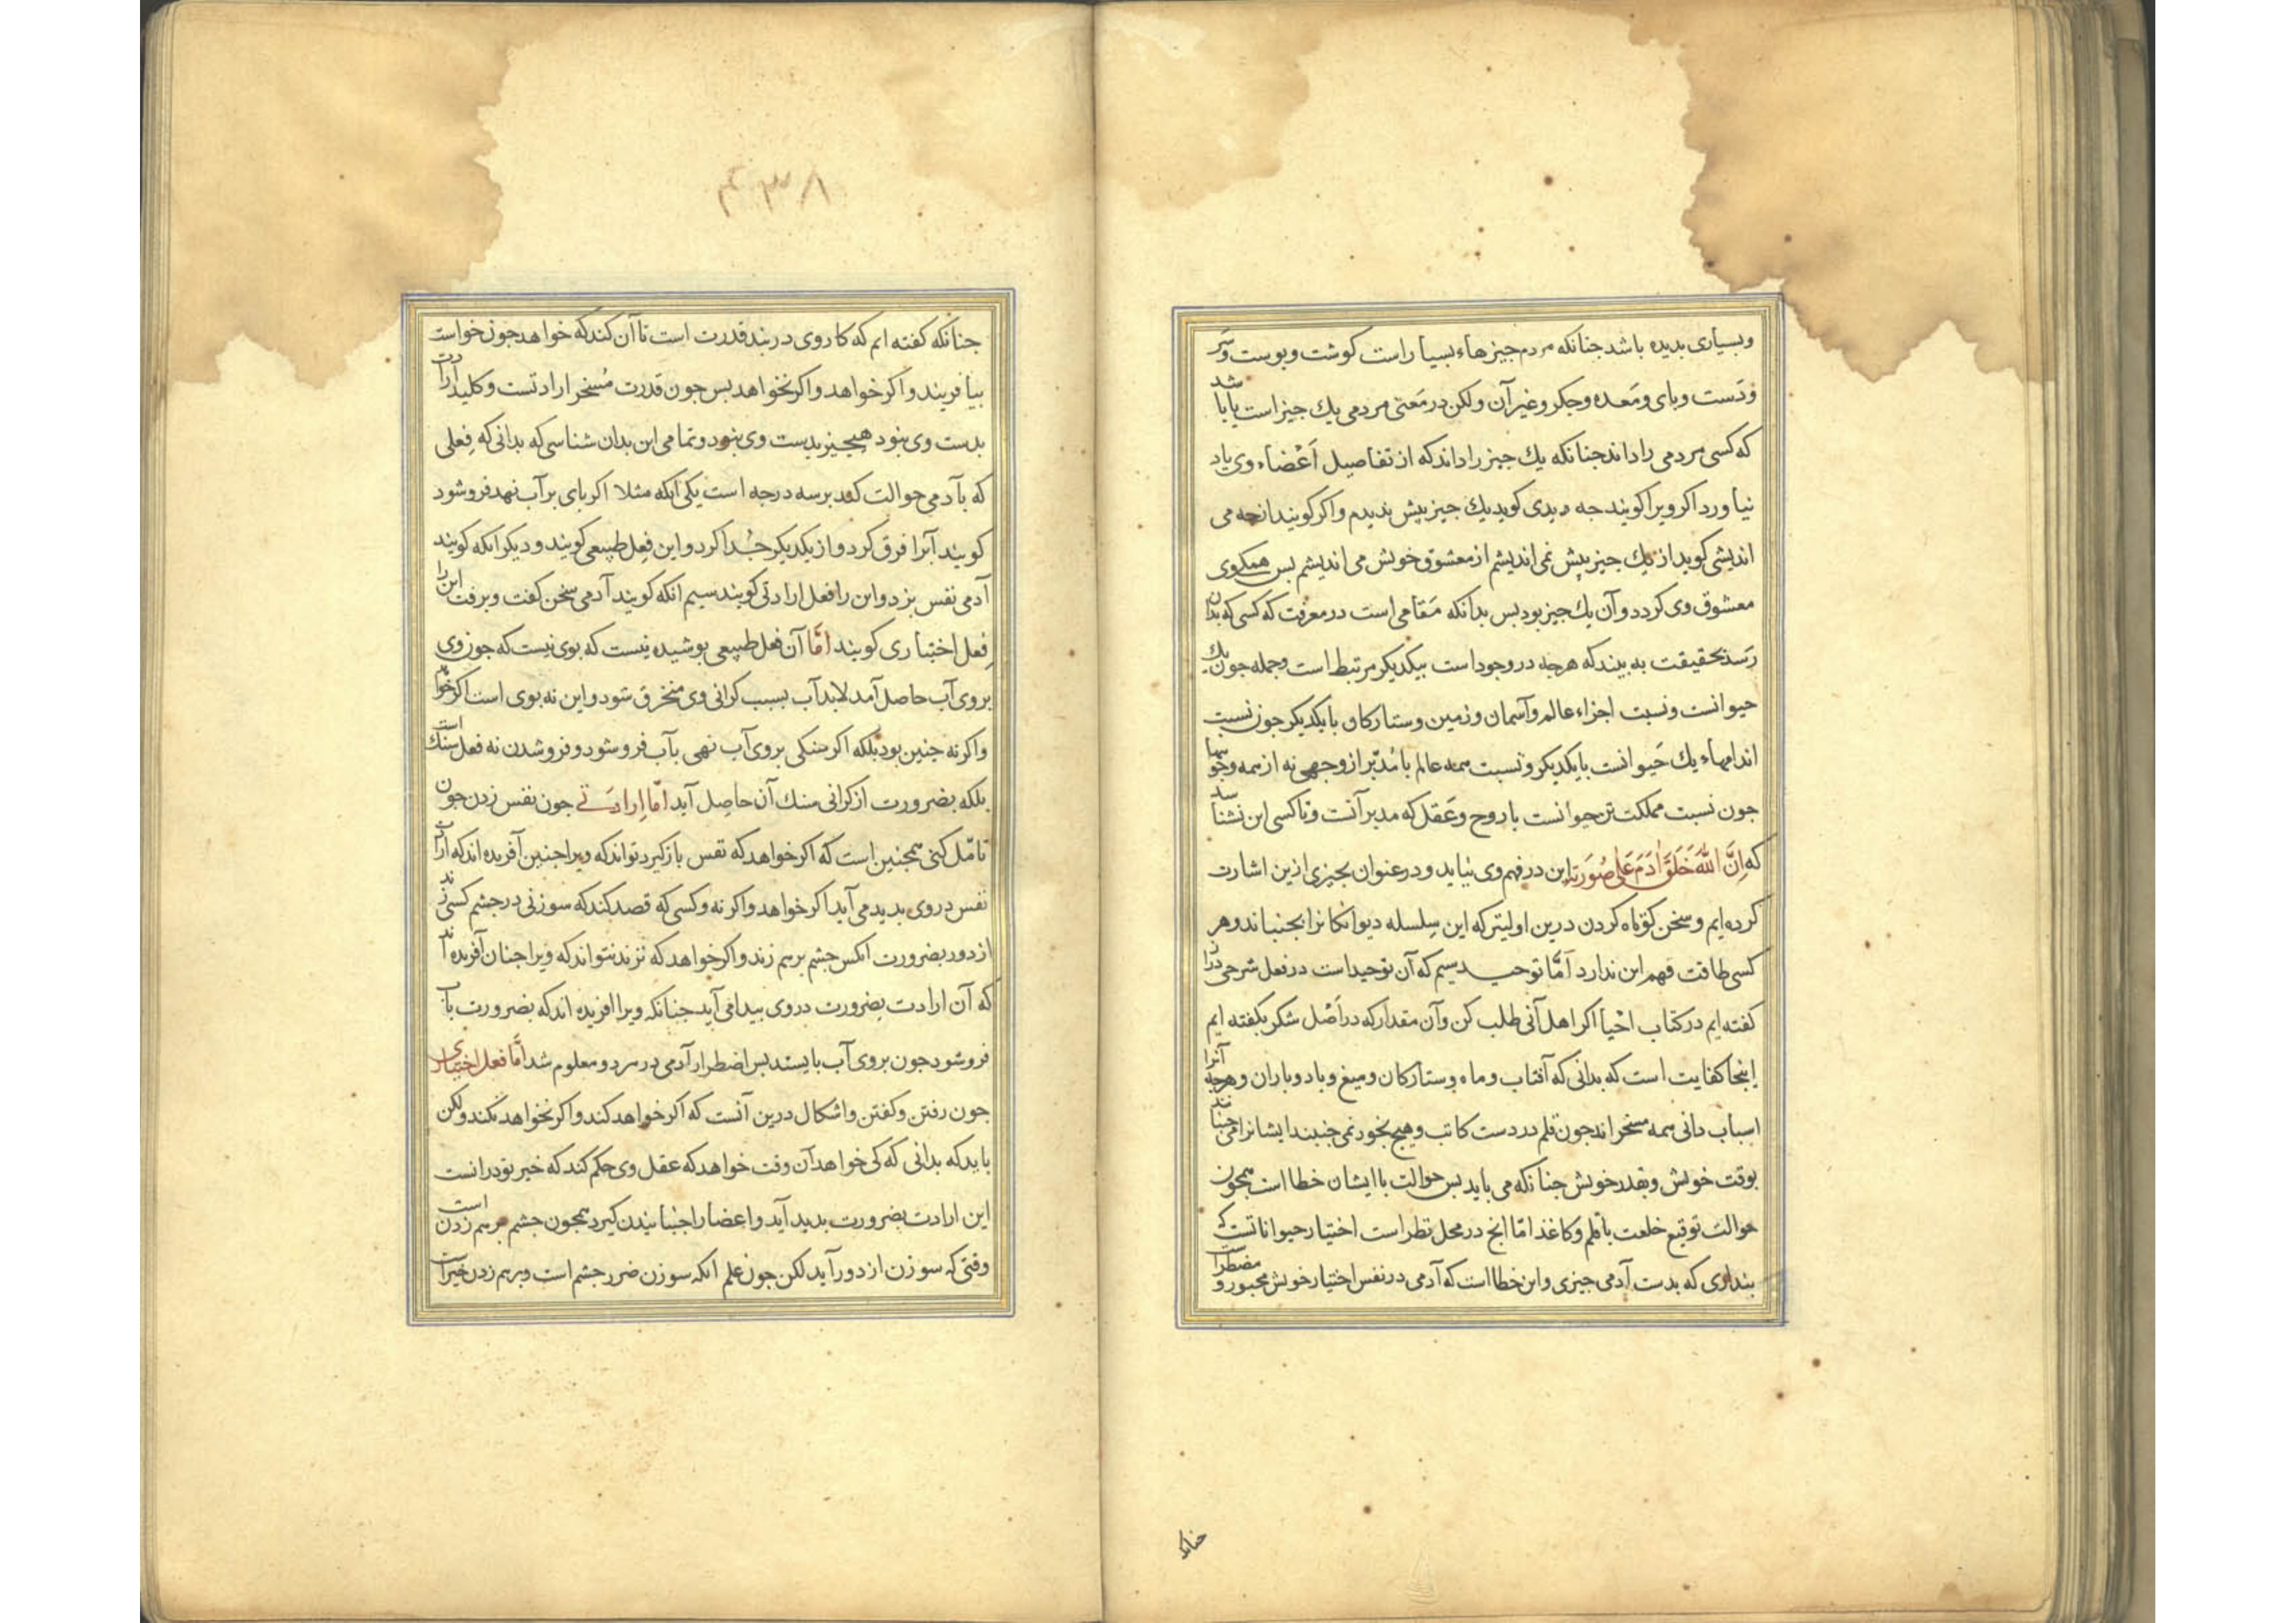 وبسیاری بدیده باشد جنانکه مردم جیزهاء بسیار است کوشت وبوست وسر
ودست وبای ومعده وجکر وغیر آن ولکن در معنی مردمی یك جیز است یا باشد
که کسی مردمی را داند جنانکه یك جیز را داند که از تفاصیل اَعْضاء وی یاد
نیاورد اکر ویرا کویند جه دیدی کوید یك جیز بیش ندیدم واکر کویند از جه می
اندیشی کوید از یك جیز بیش نمی اندیشم از معشوق خویش می اندیشم بس همکی وی
معشوق وی کردد وآن یك جیز بود بس بدانکه مقامی است در معرفت که کسی که بدان
رسد بحقیقت به بیند که هرجه در وجود است بیکدیکر مرتبط است وجمله جون یك
حیوانست ونسبت اجزاء عالم وآسمان وزمین وستارکان با یکدیکر جون نسبت
اندامهاء یك حیوانست با یکدیکر ونسبت همه عالم با مدبّر از وجهی نه از همه وجوهها
جون نسبت مملکت تن حیوانست با روح وعقل که مدبر آنست وتا کسی این نشناسد
که اِنَّ اللّٰهَ خَلَقَ اٰدَمَ عَلٰی صُورَتِهِ این در فهم وی نیاید ودر عنوان بجیزی ازین اشارت
کرده ایم وسخن کوتاه کردن درین اولیتر که این سلسله دیوانکانرا بجنباند وهر
کسی طاقت فهم این ندارد اَمّا توحید سیم که آن توحید است در فعل شرحی دراز
کفته ایم در کتاب احیا اکر اهل آنی طلب کن وآن مقدار که در اَصْل شکر بکفته ایم
اینجا کفایت است که بدانی که آفتاب وماه وستارکان ومیغ وباد وباران وهرجه آنرا
اسباب دانی همه مسخر اند جون قلم در دست کاتب وهیج بخود نمی جنبند ایشانرا می جنبانند
بوقت خویش وبقدر خویش جنانکه می باید بس حوالت با ایشان خطا است همجون
حوالت توقیع خلعت با قلم وکاغذ امّا انج در محل نظر است اختیار حیواناتست که
بنداری که بدست آدمی جیزی واین خطا است که آدمی در نفس اختیار خویش مجبور ومضطر است
جنانکه
۴۳۸
جنانکه کفته ایم که کار وی در بند قدرت است تا آن کند که خواهد جون خواست
بیافریند واکر خواهد واکر نخواهد بس جون قدرت مُسخر ارادتست وکلید ارادت
بدست وی نبود هیجیز بدست وی نبود وتمامی این بدان شناسی که بدانی که فِعلی
که بآدمی حوالت کند بر سه درجه است یکی آنکه مثلا اکر بای بر آب نهد فرو شود
کویند آبرا فرق کرد واز یکدیکر جُدا کرد واین فِعل طبیعی کویند ودیکر آنکه کویند
آدمی نفس بزد واین را فعل ارادتی کویند سیم آنکه کویند آدمی سخن کفت وبرفت این را
فِعل اختیاری کویند اَمّا آن فعل طبیعی بوشیده نیست که بوی نیست که جون وی
بروی آب حاصل آمد لابد آب بسبب کرانی وی منخرق شود واین نه بوی است اکر خواهد
واکر نه جنین بود بلکه اکر سنکی بروی آب نهی بآب فرو شود وفرو شدن نه فعل سنك است
بلکه بضرورت از کرانی سنك آن حاصل آید امّا ارادتی جون نفس زدن جون
تامّل کنی همجنین است که اکر خواهد که نفس باز کیرد نتواند که ویرا جنین آفریده اند که ارادت
نفس در وی بدید می آید اکر خواهد واکر نه وکسی که قصد کند که سوزنی در جشم کسی زند
از دور بضرورت انکس جشم برهم زند واکر خواهد که نزند نتواند که ویرا جنان آفریده اند
که آن ارادت بضرورت در وی بیدا می آید جنانکه ویرا افریده اند که بضرورت بآب
فرو شود جون بروی آب بایستد بس اضطرار آدمی در هر دو معلوم شد اَمّا فعل اختیاری
جون رفتن وکفتن واشکال درین آنست که اکر خواهد کند واکر نخواهد نکند ولکن
باید که بدانی که کی خواهد آن وقت خواهد که عقل وی حکم کند که خیر تو درانست
این ارادت بضرورت بدید آید واعضا را جنبانیدن کیرد همجون جشم برهم زدن است
وقتی که سوزن از دور آید لکن جون علم آنکه سوزن ضرر جشم است وبرهم زدن خیر است